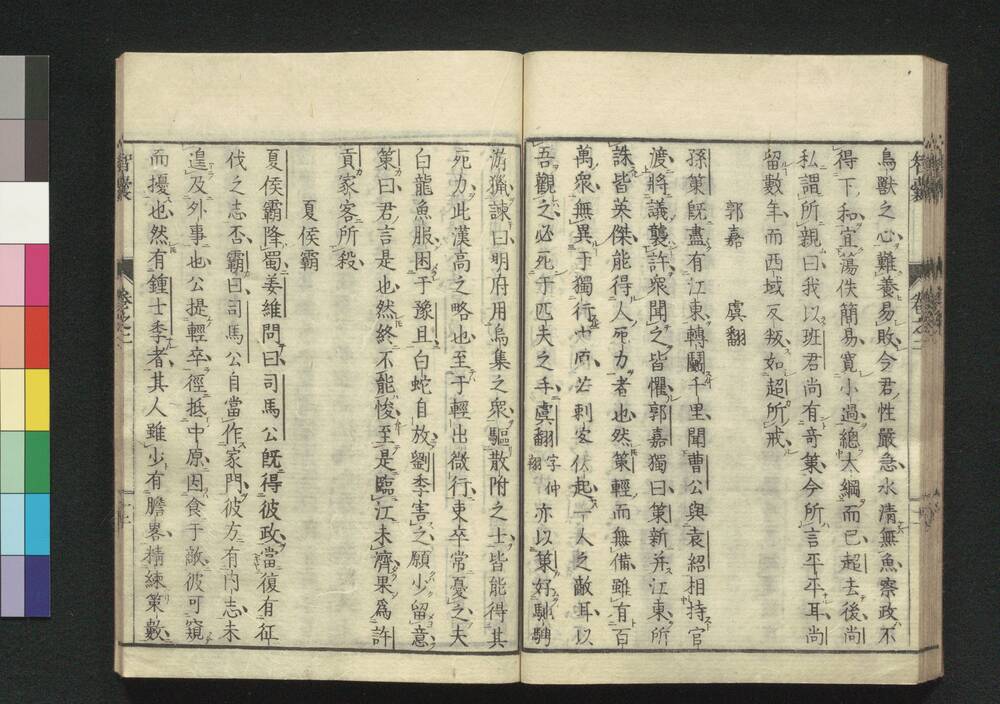 鳥獸之心難養易敗今君性嚴急水清無魚察政不
得下和宜蕩佚簡易寛小過總大綱而已超去後尚
私謂所親曰我以班君尚有奇策今所言平平耳尚
留數年而西域反叛如超所戒
郭嘉　虞翻
孫策既盡有江東轉鬭千里聞曹公與袁紹相持官
渡將議襲許衆聞之皆懼郭嘉獨曰策新并江東所
誅皆英傑能得人死力者也然策輕而無備雖有百
萬衆無異于獨行中原若刺客伏起一人之敵耳以
吾觀之必死于匹夫之手虞翻字仲翔亦以策好馳騁
游獵諫曰明府用烏集之衆驅散附之士皆能得其
死力此漢高之略也至于輕出微行吏卒常憂之夫
白龍魚服困于豫且白蛇自放劉季害之願少留意
策曰君言是也然終不能悛至是臨江未濟果爲許
貢家客所殺
夏侯霸
夏侯霸降蜀姜維問曰司馬公既得彼政當復有征
伐之志否霸曰司馬公自當作家門彼方有内志未
遑及外事也公提輕卒徑抵中原因食于敵彼可窺
而擾也然有鍾士季者其人雖少有膽畧精練策數
智囊
卷之二